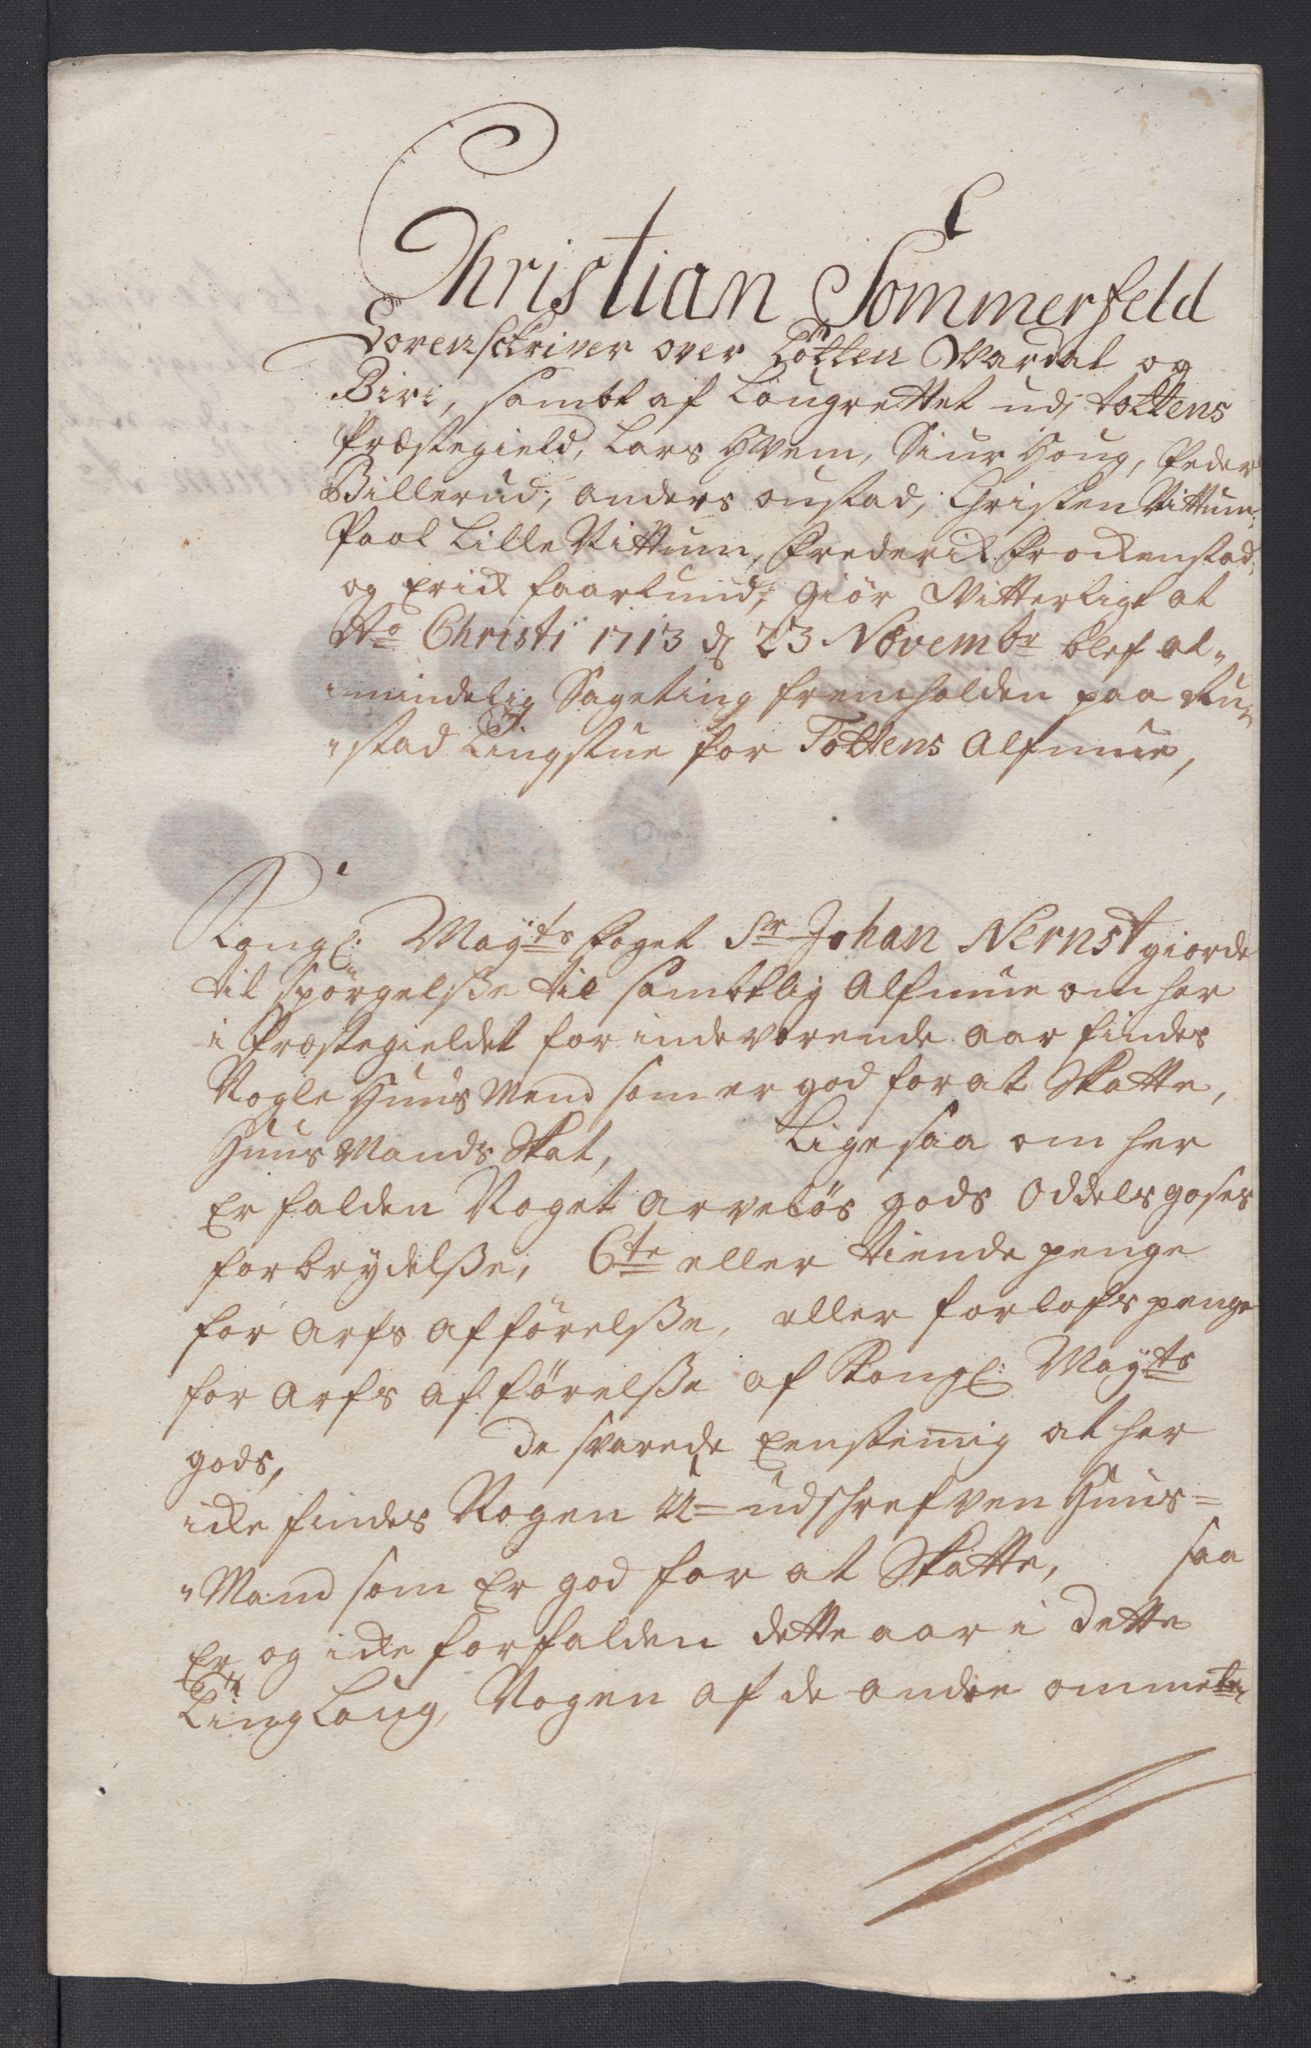 Christian Sommerfeld
Sorenschriver over Totten Wardal og
Biri, sambt af Laugrettet udj tottens
Præstegield, Lars Hvem, Siur Houg, Peder
Billerud, Anders Oustad, Christen Vittum,
Pool Lille Vittum, Frederick Frockenstad,
og Erick faarlund, Giör Vitterligt at
Ao Christi 1713 dj 23 Novembr blef al„
„mindelig Sageting fremholden paa
„stad Tingstue for Tottens Alfmue,
Kongl: Mayts Foget Sr Johan Nernst giorde
til spörgelsse til sambtlig Alfmue om her
i Præstegieldet for indeværende aar findes
Nogle Huus Mend som er god for at Skatte,
Huus Mands Skat, Lige saa om her
Er falden Noget Arvelös gods Oddels goses
forbrydelsse, 6te eller tiende penge
for Arfs Afförelsse, eller forlofs penge
for Arfs Afförelsse af Kongl: Mayts
gods, de svarede Eenstemig at her
icke findes Nogen U= udschrefven Huus=
„Mand som Er god for at Skatte, saa
Er og icke forfalden dette aar i dette
Ting Laug, Nogen af de andre ommelte